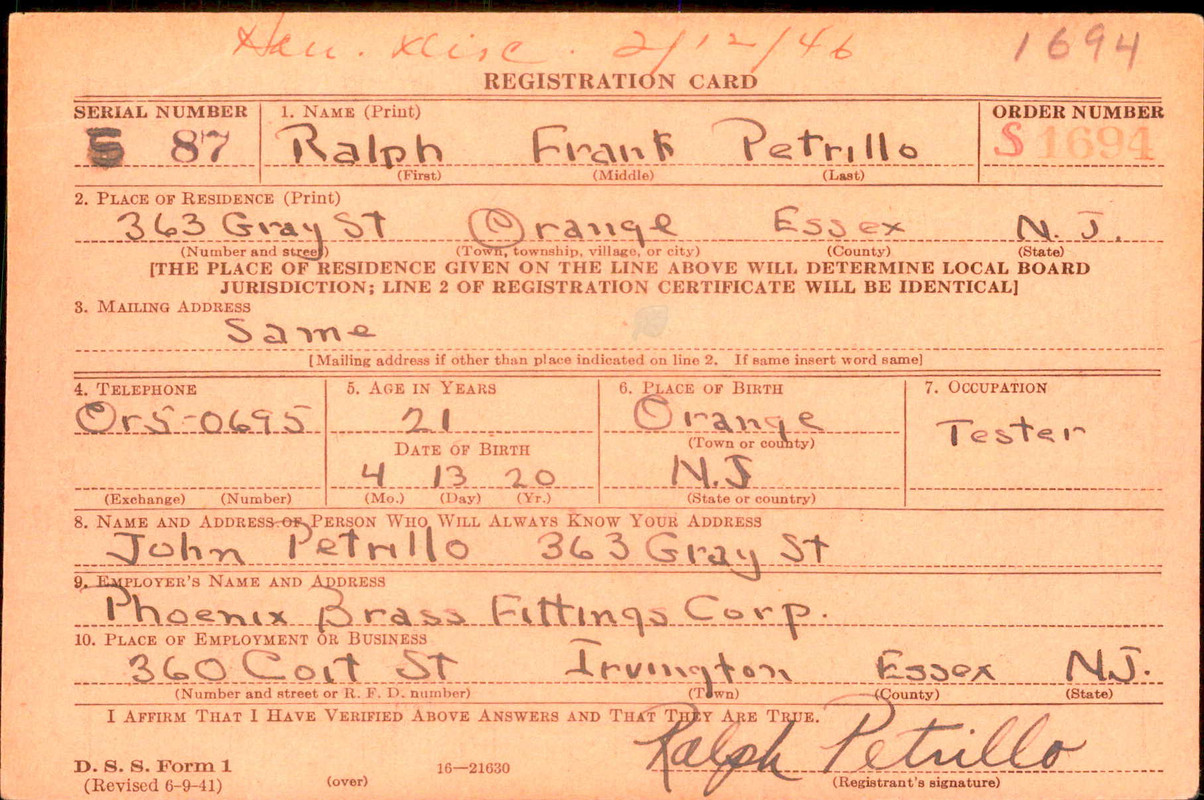 Hon. Disc. 2/12/46 1694
REGISTRATION CARD
SERIAL NUMBER 1. NAME (Print) ORDER NUMBER
87 Ralph Frank Petrillo S 1694
(First) (Middle) (Last)
2. PLACE OF RESIDENCE (Print)
363 Gray St Orange Essex N. J.
(Number and street) (Town, township, village, or city) (County) (State)
[THE PLACE OF RESIDENCE GIVEN ON THE LINE ABOVE WILL DETERMINE LOCAL BOARD
JURISDICTION; LINE 2 OF REGISTRATION CERTIFICATE WILL BE IDENTICAL]
3. MAILING ADDRESS
Same
[Mailing address if other than place indicated on line 2. If same insert word same]
4. TELEPHONE 5. AGE IN YEARS 6. PLACE OF BIRTH 7. OCCUPATION
Or5-0695 21 Orange Tester
(Town or county)
DATE OF BIRTH
4 13 20 N.J
(Exchange) (Number) (Mo.) (Day) (Yr.) (State or country)
8. NAME AND ADDRESS OF PERSON WHO WILL ALWAYS KNOW YOUR ADDRESS
John Petrillo 363 Gray St
9. EMPLOYER'S NAME AND ADDRESS
Phoenix Brass Fittings Corp.
10. PLACE OF EMPLOYMENT OR BUSINESS
360 Coit St Irvington Essex N.J.
(Number and street or R. F. D. number) (Town) (County) (State)
I AFFIRM THAT I HAVE VERIFIED ABOVE ANSWERS AND THAT THEY ARE TRUE.
Ralph Petrillo
D. S. S. Form 1
(Revised 6-9-41) (over) 16—21630 (Registrant's signature)